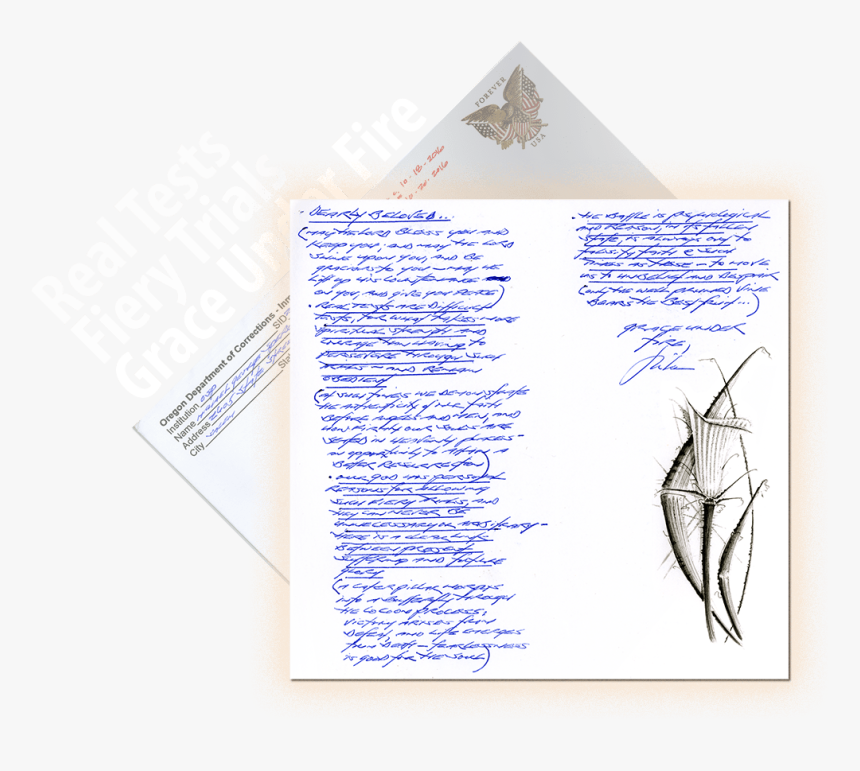 Real Tests
Fiery Trials
Grace Under Fire
FOREVER
USA
10-18-2016
10-20-2016
Oregon Department of Corrections - Inm
Institution OSP
SID
Name
Address 2605 State Street
City Salem
Stat
• DEARLY BELOVED...
(MAY THE LORD BLESS YOU AND
KEEP YOU; AND MAY THE LORD
SHINE UPON YOU, AND BE
GRACIOUS TO YOU — MAY HE
LIFT UP HIS COUNTENANCE
ON YOU, AND GIVE YOU PEACE)
• REAL TESTS ARE DIFFICULT
TESTS, FOR WHAT TAKES MORE
SPIRITUAL STRENGTH AND
ENERGY THAN HAVING TO
PERSEVERE THROUGH SUCH
TIMES — AND REMAIN
OBEDIENT
(AT SUCH TIMES WE DEMONSTRATE
THE AUTHENTICITY OF OUR FAITH
BEFORE ANGELS AND MEN, AND
HOW FIRMLY OUR SOULS ARE
SEATED IN HEAVENLY PLACES -
AN OPPORTUNITY TO ATTAIN A
BETTER RESURRECTION)
• OUR GOD HAS PERSONAL
REASONS FOR ALLOWING
SUCH FIERY TRIALS, AND
THEY CAN NEVER BE
UNNECESSARY OR ARBITRARY -
THERE IS A CLEAR LINK
BETWEEN PRESENT
SUFFERING AND FUTURE
GLORY
(A CATERPILLAR MORPHS
INTO A BUTTERFLY THROUGH
THE COCOON PROCESS;
VICTORY ARISES FROM
DEFEAT, AND LIFE EMERGES
FROM DEATH — FEARLESSNESS
IS GOOD FOR THE SOUL)
• THE BATTLE IS PSYCHOLOGICAL
AND REASON, IN ITS FALLEN
STATE, IS ALWAYS OUT TO
FALSIFY FAITH @ SUCH
TIMES AS THESE — TO MOVE
US TO UNBELIEF AND DESPAIR
(ONLY THE WELL PRUNED VINE
BEARS THE BEST FRUIT...)
GRACE UNDER
FIRE,